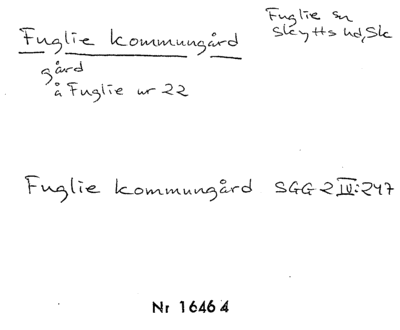 Fuglie kommungård
Fuglie sn
Skytts hd, Sk
gård
å Fuglie nr 22
Fuglie kommungård SGG 2 IV:247
Nr 16464